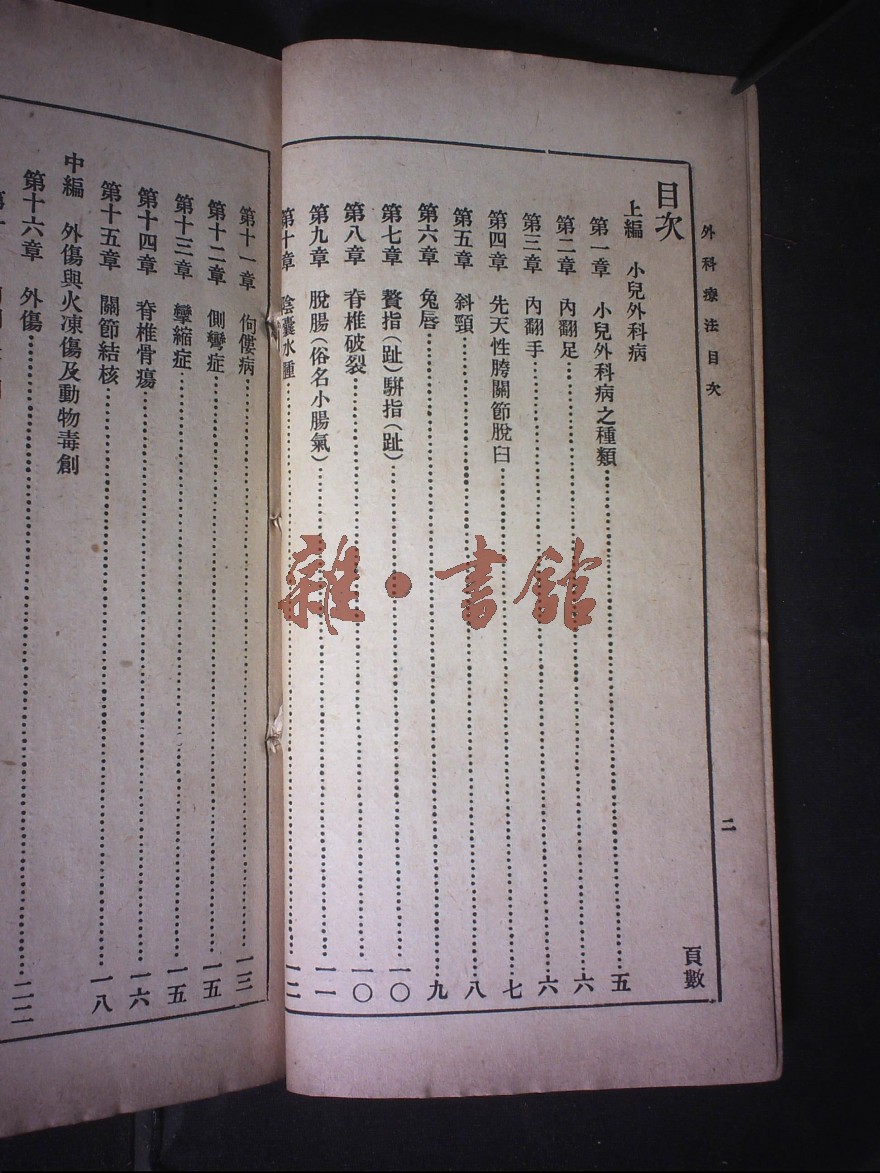 外科療法目次
二
目次
頁數
上編 小兒外科病
第一章 小兒外科病之種類 五
第二章 內翻足 六
第三章 內翻手 六
第四章 先天性胯關節脫臼 七
第五章 斜頸 八
第六章 兔唇 九
第七章 贅指(趾)駢指(趾) 一〇
第八章 脊椎破裂 一〇
第九章 脫腸(俗名小腸氣) 一一
第十章 陰囊水腫 一二
第十一章 佝僂病 一三
第十二章 側彎症 一五
第十三章 攣縮症 一五
第十四章 脊椎骨瘍 一六
第十五章 關節結核 一八
中編 外傷與火凍傷及動物毒創
第十六章 外傷 二二
雜·書館